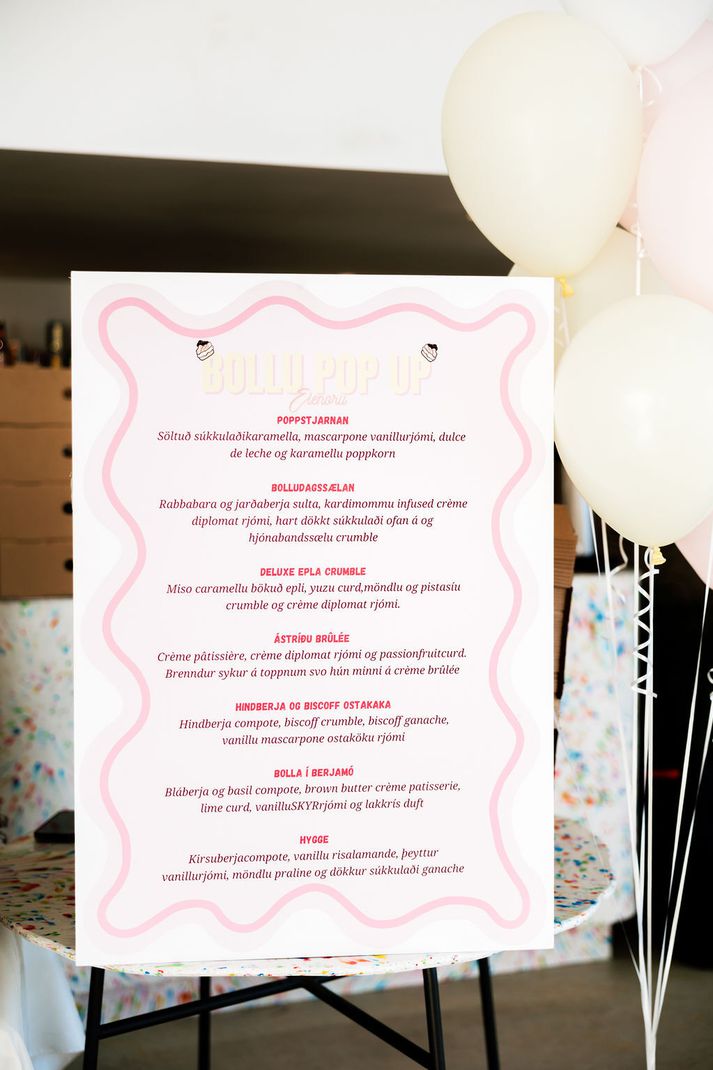 BOLLU POP UP
Elenora
POPPSTJARNAN
Söltuð súkkulaðikaramella, mascarpone vanillurjómi, dulce
de leche og karamellu poppkorn
BOLLUDAGSSÆLAN
Rabbabara og jarðaberja sulta, kardimommu infused crème
diplomat rjómi, hart dökkt súkkulaði ofan á og
hjónabandssælu crumble
DELUXE EPLA CRUMBLE
Miso caramellu bökuð epli, yuzu curd,möndlu og pistasíu
crumble og crème diplomat rjómi.
ÁSTRÍÐU BRÛLÉE
Crème pâtissière, crème diplomat rjómi og passionfruitcurd.
Brenndur sykur á toppnum svo hún minni á crème brûlée
HINDBERJA OG BISCOFF OSTAKAKA
Hindberja compote, biscoff crumble, biscoff ganache,
vanillu mascarpone ostaköku rjómi
BOLLA Í BERJAMÓ
Bláberja og basil compote, brown butter crème patisserie,
lime curd, vanilluSKYRrjómi og lakkrís duft
HYGGE
Kirsuberjacompote, vanillu risalamande, þeyttur
vanillurjómi, möndlu praline og dökkur súkkulaði ganache